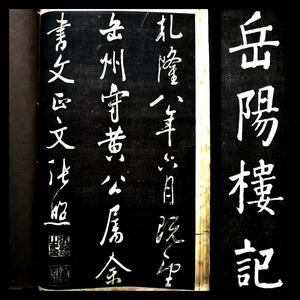 岳陽樓記
乾隆八年六月既望
岳州守黄公属余
書文正文張照